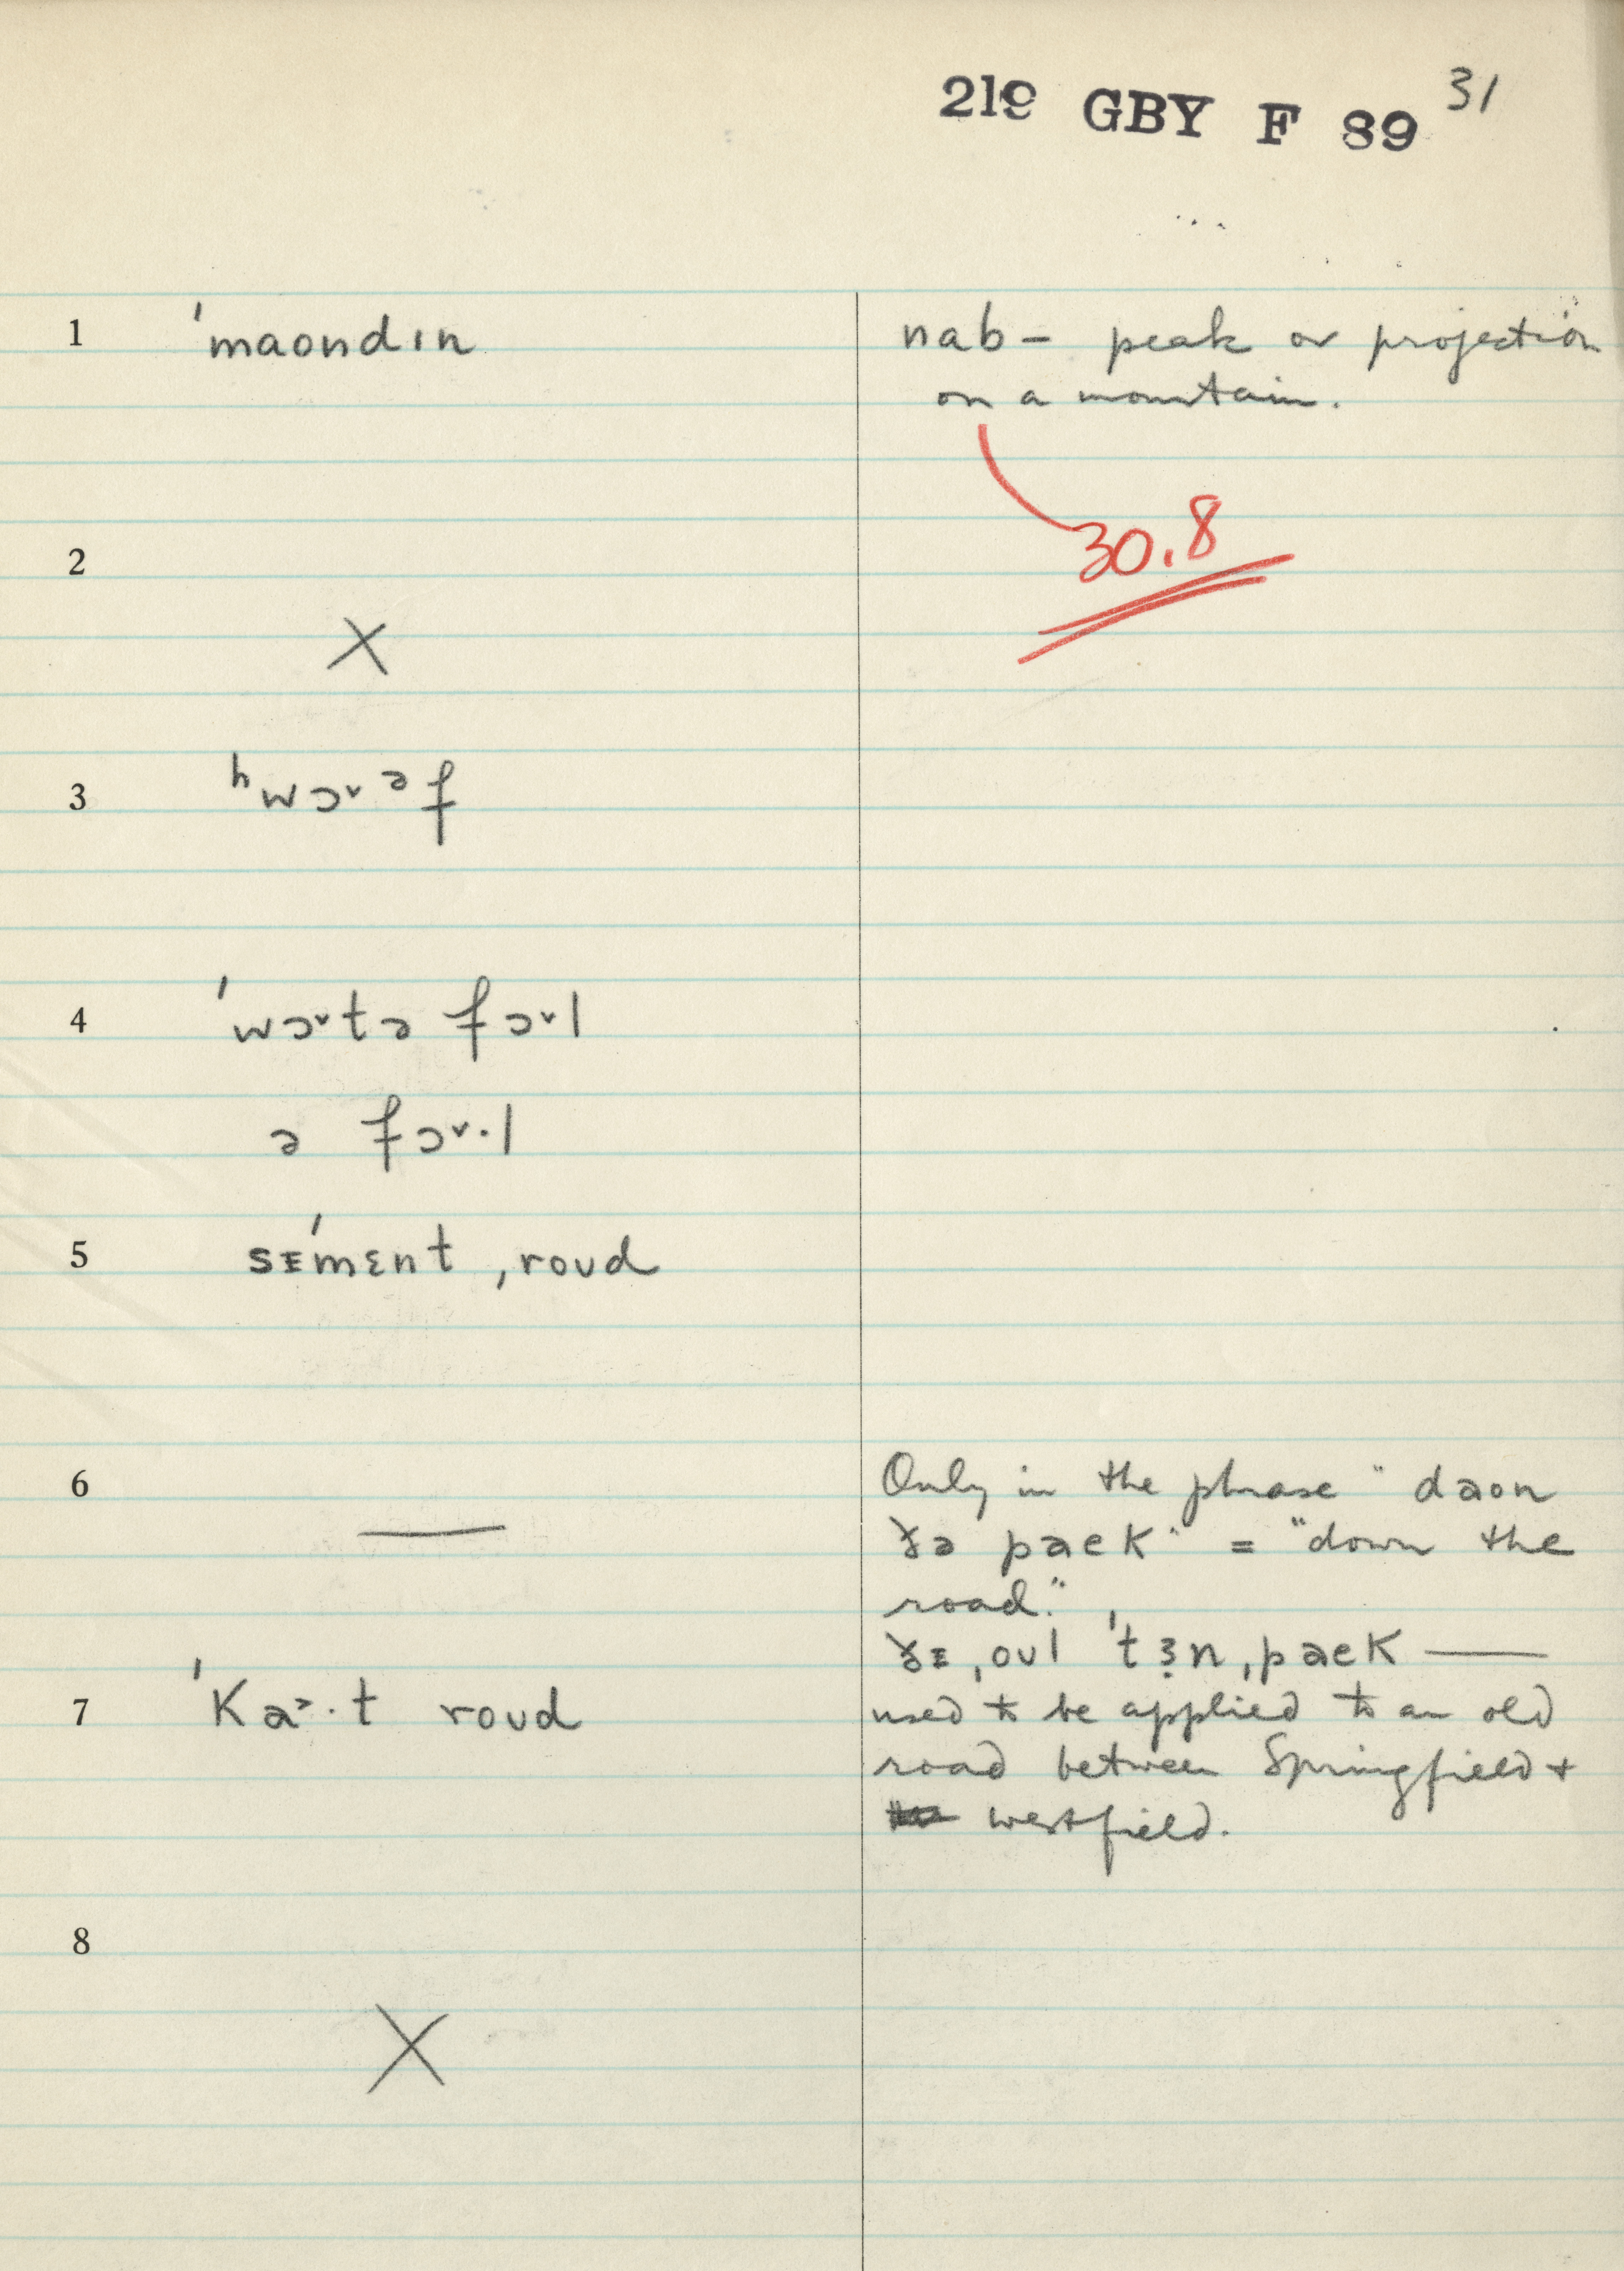 219 GBY F 89 31
1 ˈmaondɪn
nab – peak or projection
on a mountain.
30.8
2
X
3 ʰwɔ˅ᵊf
4 ˈwɔ˅tə fɔ˅l
ə fɔ˅·l
5 sᴇˈmɛnt ˌroʊd
6 —
Only in the phrase "daon
ðə paek" = "down the
road."
ðᴇ ˌoʊl ˈtɜn ˌpaek —
7 ˈKa˃·t roʊd
used to be applied to an old
road between Springfield +
westfield.
8
X